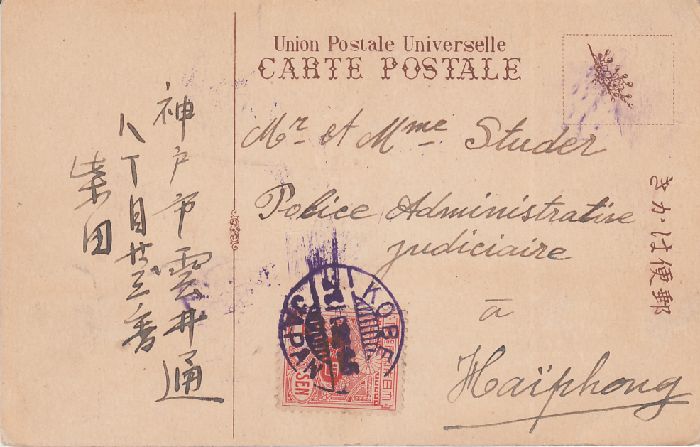 Union Postale Universelle
CARTE POSTALE
Mr et Mme Studer
Police Administrative
judiciaire
à
Haïphong
神戸市雲井通
八丁目廿三番
柴田
きかは便郵
KOBE
JAPAN
SEN